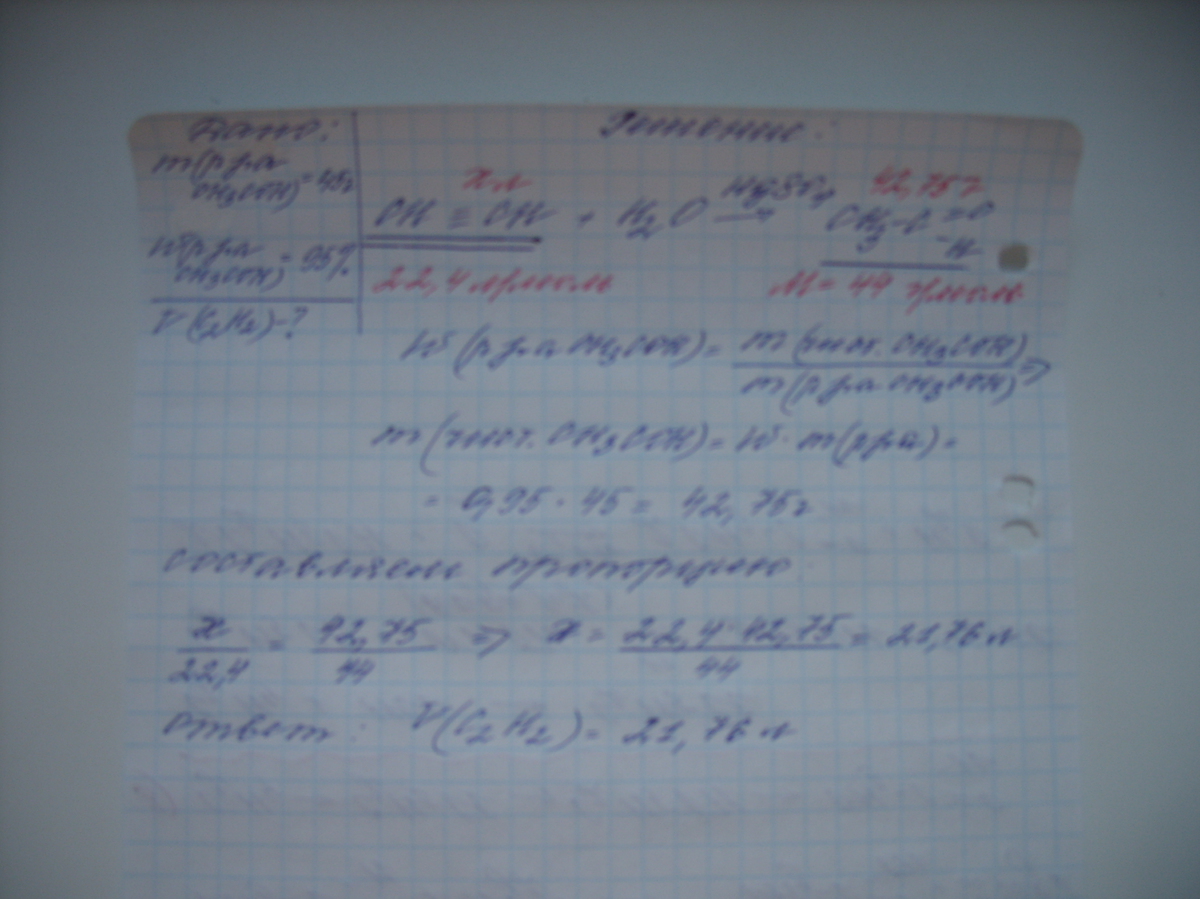 Дано:
m(р-ра
CH₃COH) = 45г
W(р-ра
CH₃COH) = 95%
V(C₂H₂)-?
Решение:
x л HgSO₄ 42,75г
CH ≡ CH + H₂O → CH₃-C=O
-H
22,4 л/моль M = 44 г/моль
W(р-ра CH₃COH) = m(чист. CH₃COH) / m(р-ра CH₃COH) ⇒
m(чист. CH₃COH) = W · m(р-ра) =
= 0,95 · 45 = 42,75г
составляем пропорцию
x/22,4 = 42,75/44 ⇒ x = 22,4·42,75/44 = 21,76 л
Ответ: V(C₂H₂) = 21,76 л